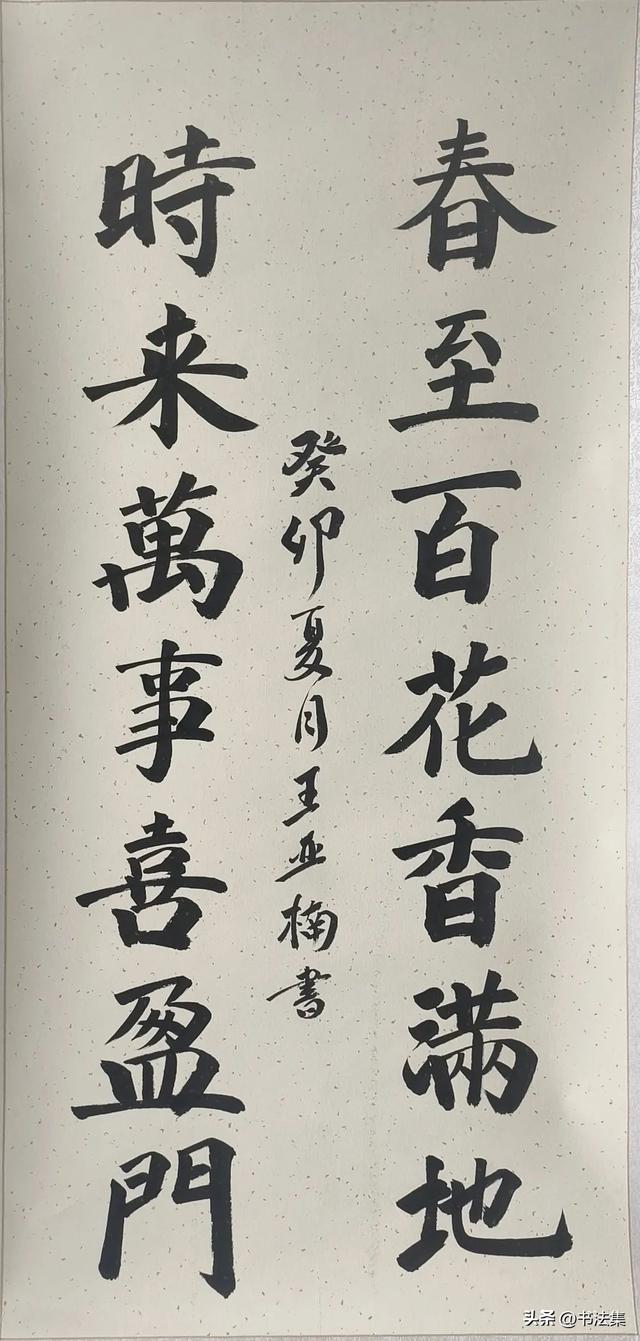 春至百花香滿地
時来萬事喜盈門
癸卯夏月王亚楠書
头条 @书法集